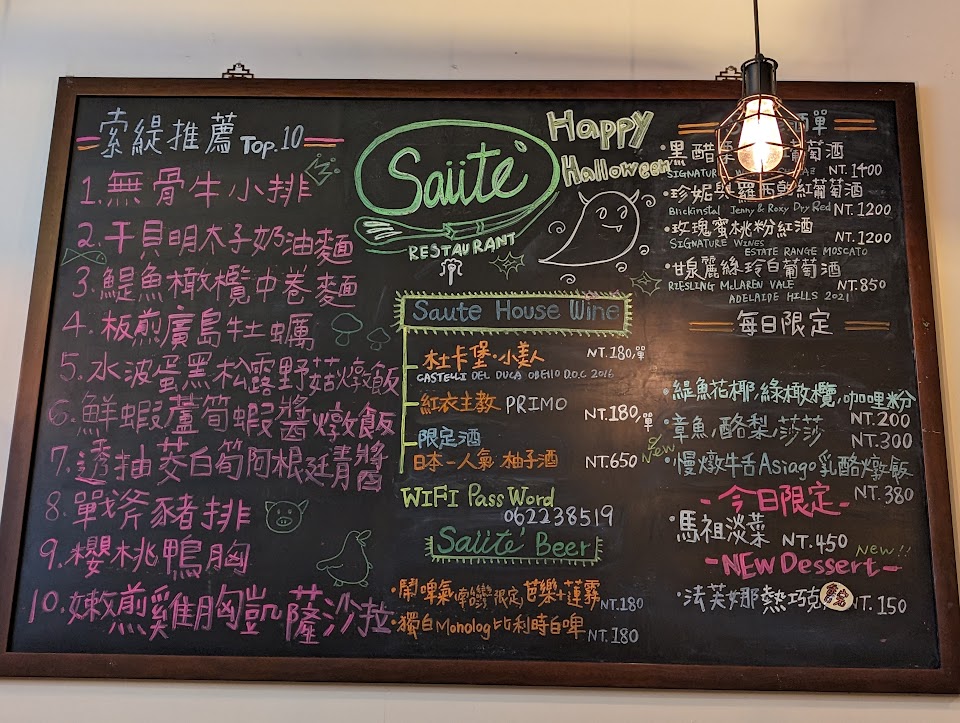 索緹推薦 Top.10
1.無骨牛小排
2.干貝明太子奶油麵
3.鯷魚橄欖中卷麵
4.板煎廣島牡蠣
5.水波蛋黑松露野菇燉飯
6.鮮蝦蘆筍蝦醬燉飯
7.透抽茭白筍阿根廷青醬
8.戰斧豬排
9.櫻桃鴨胸
10.嫩煎雞胸凱薩沙拉
Saüte
RESTAURANT
Happy
Halloween
Saute House Wine
杜卡堡·小美人 NT.180/單
CASTELLI DEL DUCA D.O.C 2016
紅衣主教 PRIMO NT.180/單
限定酒
日本一人氣 柚子酒 NT.650 New
WIFI PassWord
062238519
Saüte Beer
·鬧啤氣 限定,芭樂+蓮霧 NT.180
·獨白Monolog比利時白啤 NT.180
單
·黑醋 葡萄酒
SIGNATUR NT.1400
·珍妮與羅西 紅葡萄酒
Brickinstal Jenny & Roxy Dry Red NT.1200
·玫瑰蜜桃粉紅酒
SIGNATURE WINES NT.1200
ESTATE RANGE MOSCATO
·甘泉麗絲玲白葡萄酒
RIESLING McLAREN VALE NT.850
ADELAIDE HILLS 2021
每日限定
·鯷魚花椰/綠橄欖/咖哩粉
NT.200
·章魚/酪梨/莎莎 NT.300
·慢燉牛舌Asiago乳酪燉飯
NT.380
-今日限定-
·馬祖淡菜 NT.450
New!!
-NEW Dessert-
·法芙娜熱巧克 NT.150